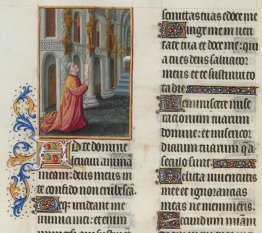 Ad te domine
leuaui animā
meam: deus meus in
te confido non erubescā.
Neqꝫ irrideant me
inimici mei: et enim
semitas tuas edoce me
Dirige me in veri
tate tua et doce me: quia
tu es deus saluator
meus et te sustinui to
ta die
Reminiscere mise
rationum tuarum
domine: et misericordi
arum tuarum que a
seculo sunt
Delicta iuuentutis
mee et ignorantias
meas ne memineris.
Secundum miam̄